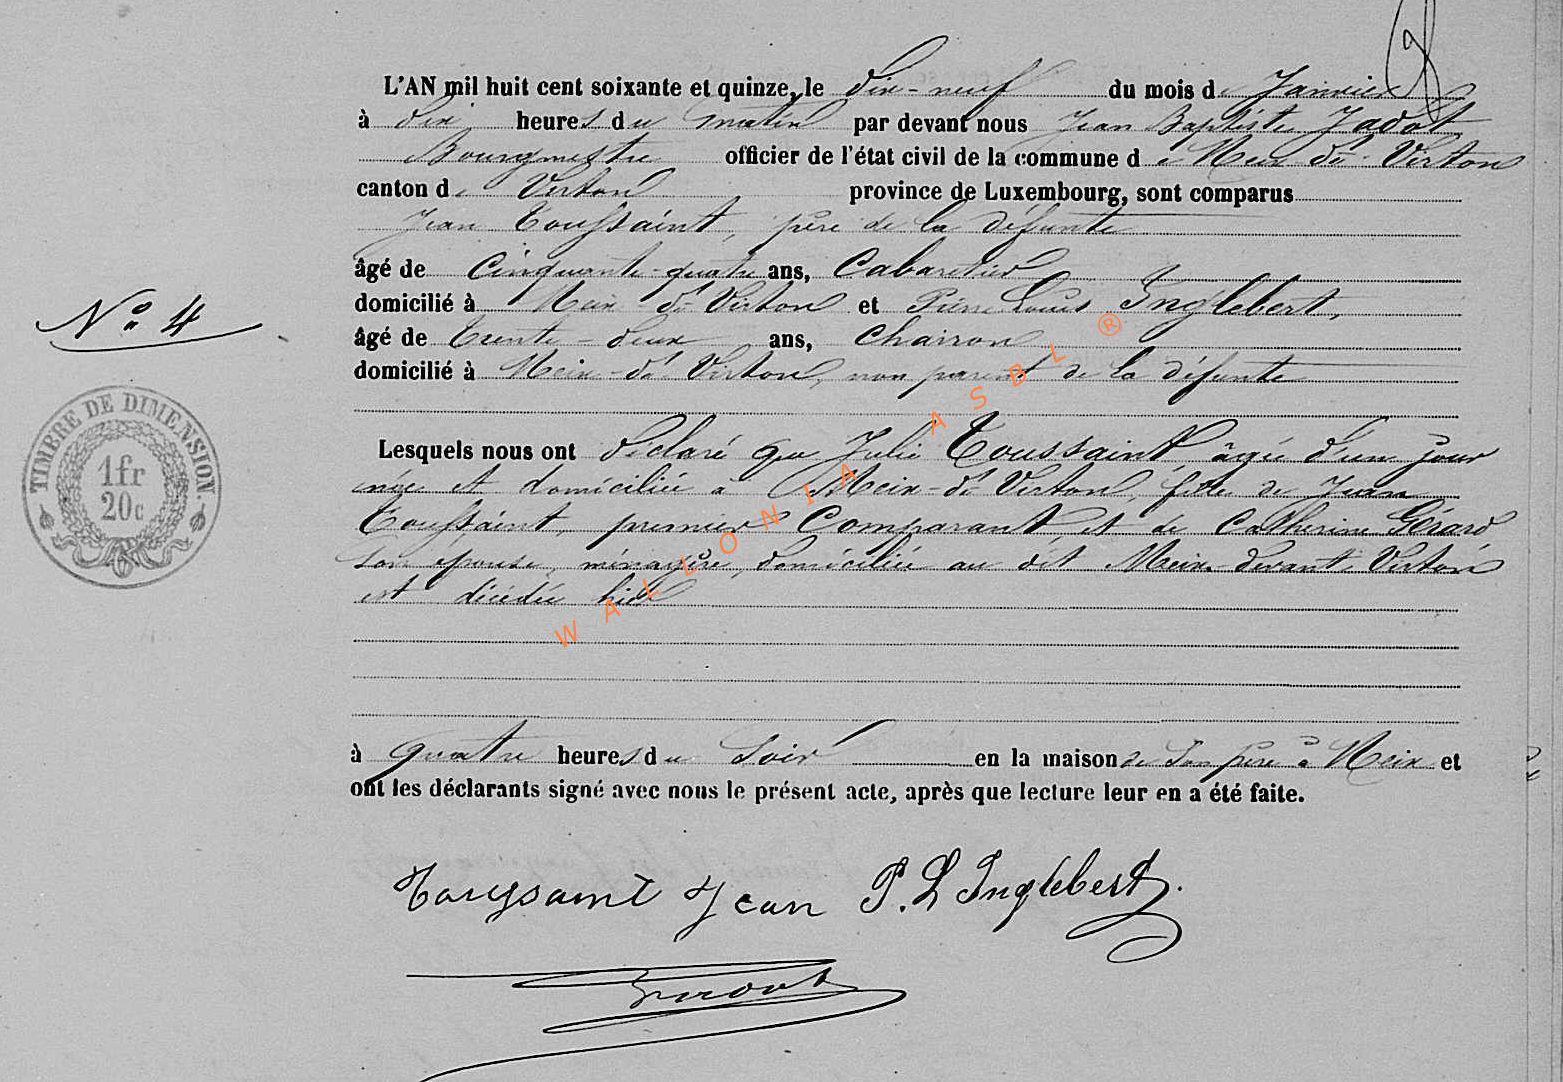 L'AN mil huit cent soixante et quinze, le dix-neuf du mois de Janvier
à dix heures du matin par devant nous Jean Baptiste Jadot
Bourgmestre officier de l'état civil de la commune de Meix-dt-Virton
canton de Virton province de Luxembourg, sont comparus
Jean Toussaint, père de la défunte
âgé de cinquante-quatre ans, Cabaretier
domicilié à Meix-dt-Virton et Pierre Louis Inglebert,
âgé de trente-deux ans, charron
domicilié à Meix-dt-Virton, non parent de la défunte
N° 4
TIMBRE DE DIMENSION.
1fr
20c
Lesquels nous ont déclaré que Julie Toussaint âgée d'un jour
née et domiciliée à Meix-dt-Virton, fille de Jean
Toussaint, premier Comparant et de Catherine Gérard
son épouse, ménagère, domiciliée au dit Meix-devant-Virton
est décédée hier
à quatre heures du soir en la maison de son père à Meix et
ont les déclarants signé avec nous le présent acte, après que lecture leur en a été faite.
Toussaint Jean P. L Inglebert
WALLONIA ASBL ®